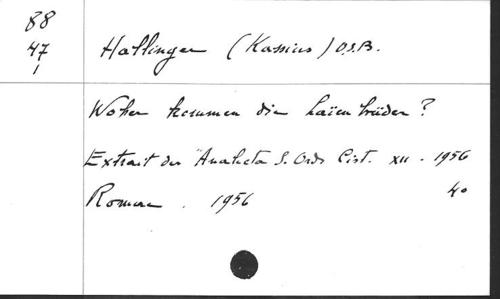 88
47
1
Hallinger (Kassius) O.S.B.
Woher kommen die Laïenbrüder?
Extrait des "Analecta S. Ords Cist. XII. 1956
Romae. 1956 4°